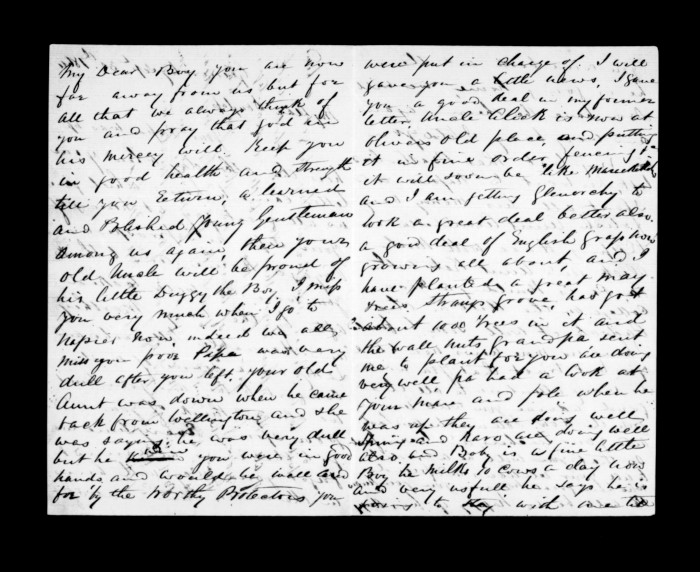 My Dear Boy you are now
far away from us but for
all that we always think of
you and pray that god in
his mercey will Keep you
in good health and strength
till you Return, a learned
and Polished Young Gentleman
among us again, then your
old Uncle will be proud of
his little Duggy the Boy, I miss
you very much when I go to
Napier now, indeed we all
miss you poor Papa was very
dull after you left. your old
Aunt was down when he came
back from Wellington and she
was saying he was very dull
but he knew you were in good
hands and would be well and
for by the Worthy Protectors you
were put in charge of. I will
gave you a little news, I gave
you a good deal in my former
letter Uncle Click is now at
old place, and putting
it in fine order, fencing it
it will soon be like
and I am getting Glenorchy to
look a great deal better also.
a good deal of English grass now
growing all about, and I
have planted a great may
trees. Strang grove, has got
about 1000 trees in it and
the wall nuts Grandpa sent
me to plant for you are doing
very well, pa had a look at
your mare and fole when he
was up they are doing well
Spring and hero are doing well
also and Bob is a fine little
Boy he milks 10 cows a day now
and very usfull he says he is
going to stay with me till